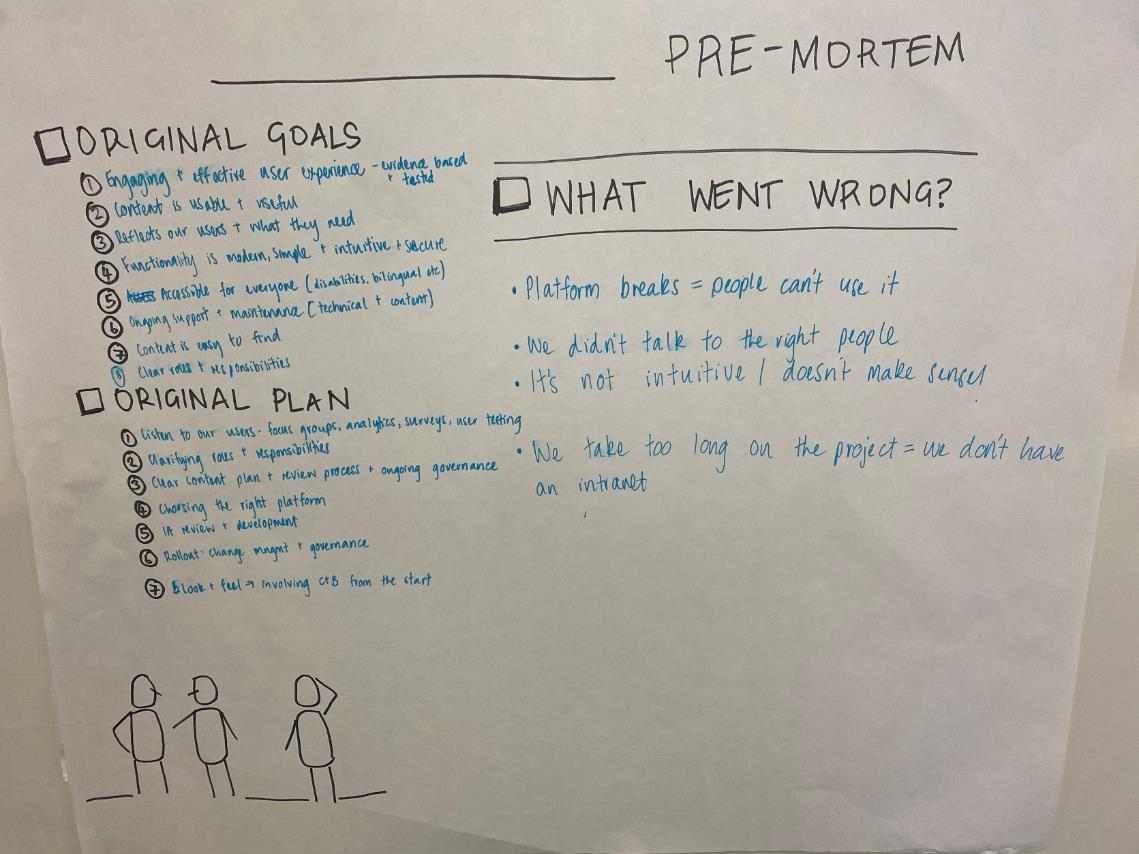 PRE-MORTEM
ORIGINAL GOALS
① Engaging + effective user experience - evidence based
+ tested
② Content is usable + useful
③ Reflects our users + what they need
④ Functionality is modern, simple + intuitive + secure
⑤ Accessible for everyone (disabilities, bilingual etc)
⑥ Ongoing support + maintenance (technical + content)
⑦ Content is easy to find
⑧ Clear roles + responsibilities
ORIGINAL PLAN
① Listen to our users - focus groups, analytics, surveys, user testing
② Clarifying roles + responsibilities
③ Clear content plan + review process + ongoing governance
④ Choosing the right platform
⑤ IA review + development
⑥ Rollout: change mngmt + governance
⑦ Look + feel → involving C+B from the start
WHAT WENT WRONG?
• Platform breaks = people can't use it
• We didn't talk to the right people
• It's not intuitive / doesn't make sense!
• We take too long on the project = we don't have
an intranet